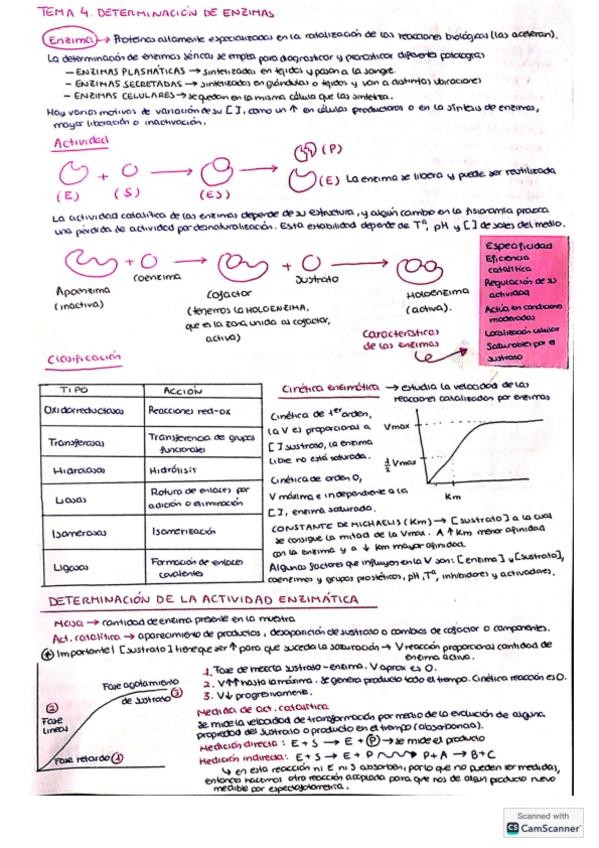 TEMA 4. DETERMINACIÓN DE ENZIMAS
Enzima → Proteínas altamente especializadas en la catalización de las reacciones biológicas (las aceleran).
La determinación de enzimas séricas se emplea para diagnosticar y pronosticar diferentes patologías
– ENZIMAS PLASMÁTICAS → sintetizadas en tejidos y pasan a la sangre.
– ENZIMAS SECRETADAS → sintetizadas en glándulas o tejidos y van a distintas ubicaciones
– ENZIMAS CELULARES → se quedan en la misma célula que las sintetiza.
Hay varios motivos de variación de su [ ], como un ↑ en células productoras o en la síntesis de enzimas,
mayor liberación o inactivación.
Actividad
(E) + (S) → (ES)
(P)
(E) La enzima se libera y puede ser reutilizada
La actividad catalítica de las enzimas depende de su estructura, y algún cambio en la fisionomía provoca
una pérdida de actividad por desnaturalización. Esta estabilidad depende de Tª, pH y [ ] de sales del medio.
Apoenzima
(inactiva)
+
coenzima
→
Cofactor
(tenemos la HOLOENZIMA,
que es la zona unida al cofactor,
activa)
+
sustrato
→
Holoenzima
(activa).
Características
de las enzimas
Especificidad
Eficiencia
catalítica
Regulación de su
actividad
Actúa en condiciones
moderadas
Localización celular
Saturables por el
sustrato
Clasificación
TIPO ACCIÓN
Oxidorreductasas Reacciones red-ox
Transferasas Transferencia de grupos
funcionales
Hidrolasas Hidrólisis
Liasas Rotura de enlaces por
adición o eliminación
Isomerasas Isomerización
Ligasas Formación de enlaces
covalentes
Cinética enzimática → estudia la velocidad de las
reacciones catalizadas por enzimas
Cinética de 1er orden,
la V es proporcional a
[ ] sustrato, la enzima
libre no está saturada.
Cinética de orden 0,
V máxima e independiente a la
[ ], enzima saturada.
Vmax
½ Vmax
Km
CONSTANTE DE MICHAELIS (Km) → [sustrato] a la cual
se consigue la mitad de la Vmax. A ↑ Km menor afinidad
con la enzima y a ↓ km mayor afinidad.
Algunas factores que influyen en la V son: [enzima] y [sustrato],
coenzimas y grupos prostéticos, pH, Tª, inhibidores y activadores.
DETERMINACIÓN DE LA ACTIVIDAD ENZIMÁTICA
Masa → cantidad de enzima presente en la muestra
Act. catalítica → aparecimiento de productos, desaparición de sustrato o cambios de cofactor o componentes.
Importante! [sustrato] tiene que ser ↑ para que suceda la saturación → V reacción proporcional cantidad de
enzima activa.
Fase agotamiento
de sustrato (3)
(2)
Fase
lineal
Fase retardo (1)
1. Fase de mezcla sustrato-enzima. V aprox es 0.
2. V↑↑ hasta la máxima. Se genera producto todo el tiempo. Cinética reacción es 0.
3. V↓ progresivamente.
Medida de act. catalítica
Se mide la velocidad de transformación por medio de la evolución de alguna
propiedad del sustrato o producto en el tiempo (absorbancia).
Medición directa: E + S → E + P → se mide el producto
Medición indirecta: E + S → E + P P + A → B + C
↳ en esta reacción ni E ni S absorben, por lo que no pueden ser medidas,
entonces hacemos otra reacción acoplada para que nos de algún producto nuevo
medible por espectofotometría.
Scanned with
CS CamScanner